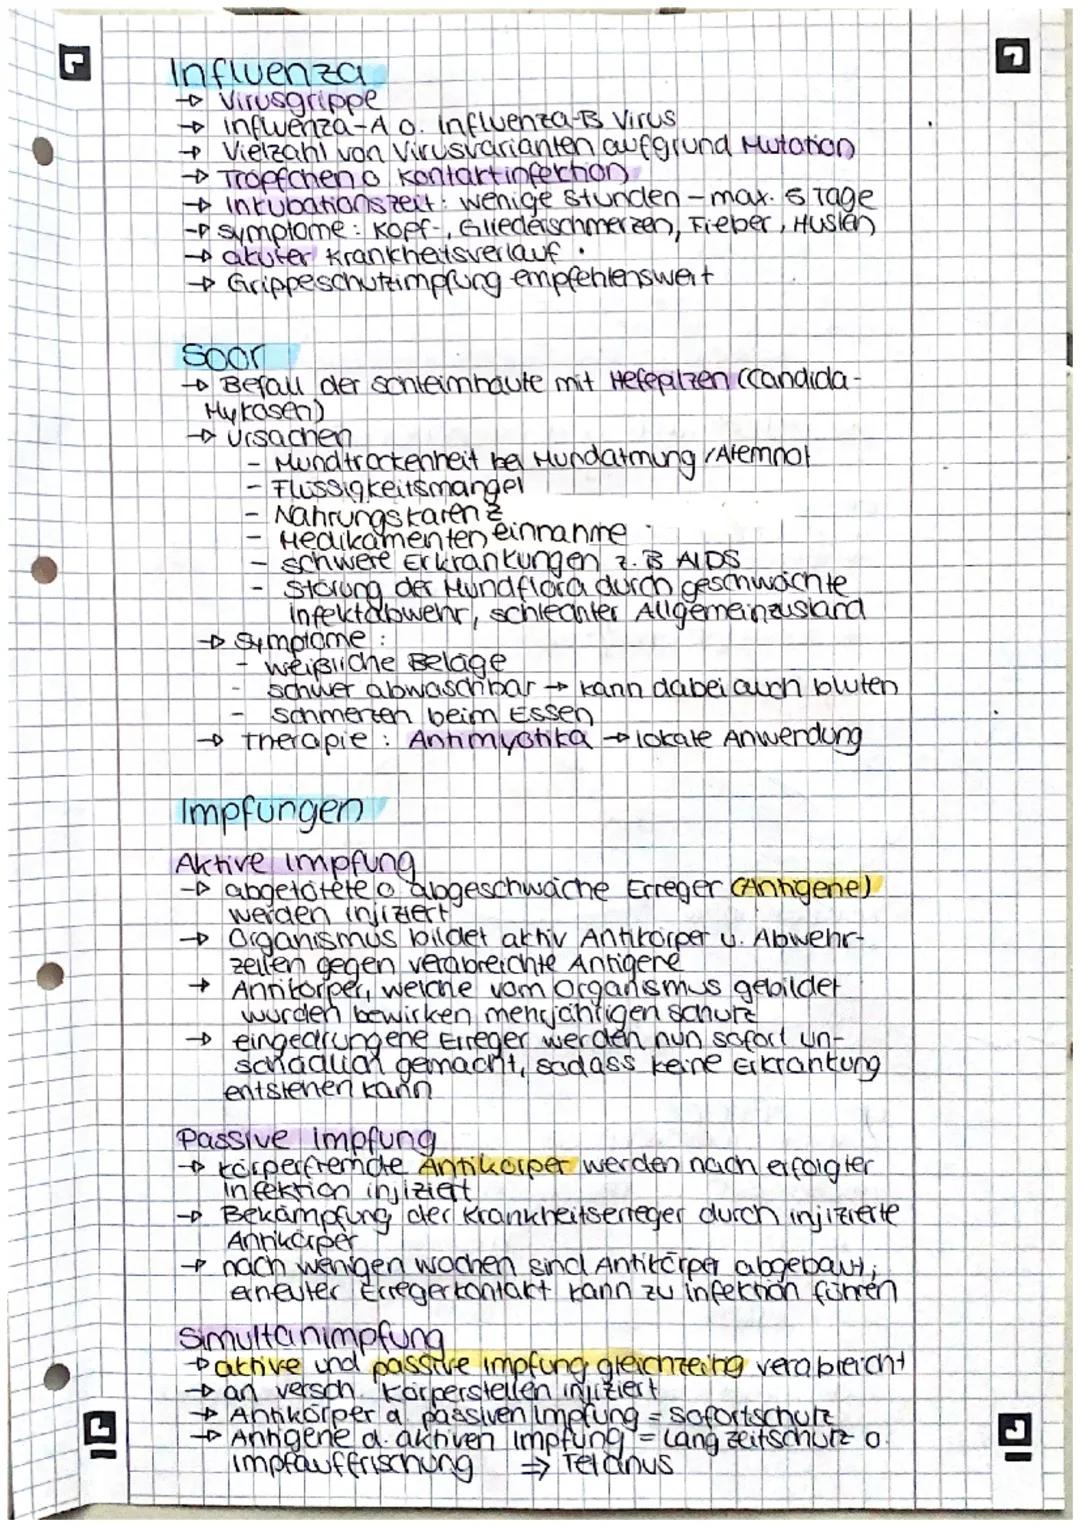 Influenza
→ Virusgrippe
→ Influenza-A o. Influenza-B Virus
→ Vielzahl von Virusvarianten aufgrund Mutation
→ Tröpfchen o Kontaktinfektion
→ Inkubationszeit: wenige Stunden - max. 5 Tage
→ Symptome: Kopf-, Gliederschmerzen, Fieber, Husten
→ akuter Krankheitsverlauf
→ Grippeschutzimpfung empfehlenswert
Soor
→ Befall der Schleimhäute mit Hefepilzen (Candida-
Mykosen)
→ Ursachen
- Mundtrockenheit bei Mundatmung / Atemnot
- Flüssigkeitsmangel
- Nahrungskarenz
- Medikamenten einnahme
- schwere Erkrankungen z.B AIDS
- Störung der Mundflora durch geschwächte
Infektabwehr, schlechter Allgemeinzustand
→ Symptome:
- weißliche Beläge
- schwer abwaschbar → kann dabei auch bluten
- Schmerzen beim Essen
→ Therapie: Antimyotika → lokale Anwendung
Impfungen
Aktive Impfung
→ abgetötete o. abgeschwäche Erreger (Antigene)
werden injiziert
→ Organismus bildet aktiv Antikörper u. Abwehr-
zellen gegen verabreichte Antigene
→ Antikörper, welche vom Organismus gebildet
wurden bewirken mehrjährigen Schutz
→ eingedrungene Erreger werden nun sofort un-
schädlich gemacht, sodass keine Erkrankung
entstehen kann
Passive Impfung
→ körperfremde Antikörper werden nach erfolgter
Infektion injiziert
→ Bekämpfung der Krankheitserreger durch injizierte
Antikörper
→ nach wenigen Wochen sind Antikörper abgebaut;
erneuter Erregerkontakt kann zu Infektion führen
Simultanimpfung
→ aktive und passive Impfung gleichzeitig verabreicht
→ an versch. Körperstellen injiziert
→ Antikörper d. passiven Impfung = Sofortschutz
→ Antigene d. aktiven Impfung = Langzeitschutz o.
Impfauffrischung ⇒ Tetanus